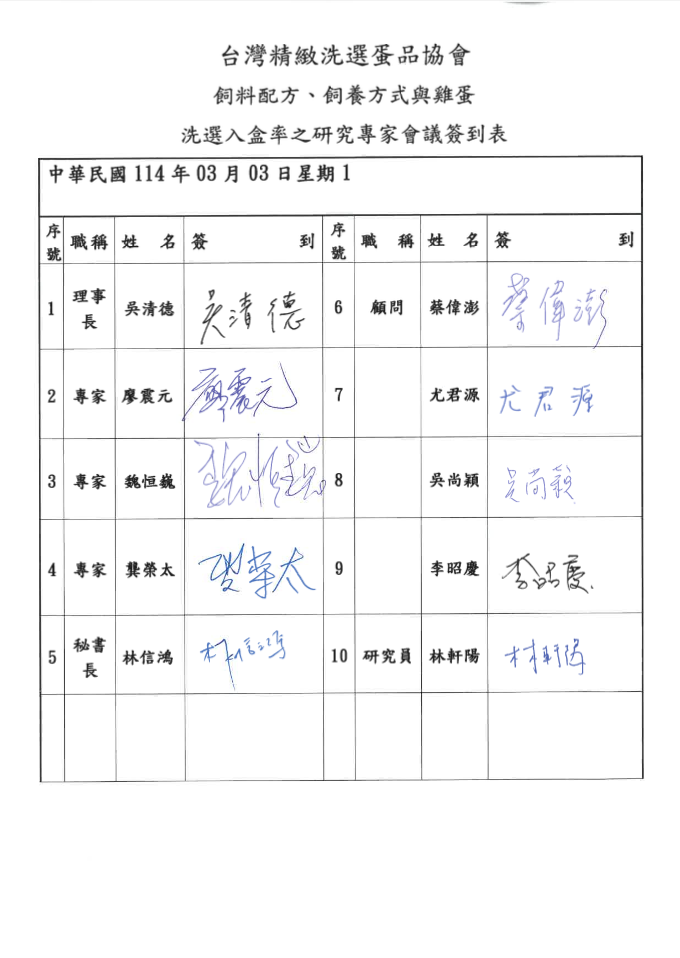 台灣精緻洗選蛋品協會
飼料配方、飼養方式與雞蛋
洗選入盒率之研究專家會議簽到表
中華民國 114 年 03 月 03 日星期 1
序號 職稱 姓名 簽到 序號 職稱 姓名 簽到
1 理事長 吳清德 吳清德 6 顧問 蔡偉澎 蔡偉澎
2 專家 廖震元 廖震元 7 尤君源 尤君源
3 專家 魏恒巍 魏恒巍 8 吳尚穎 吳尚穎
4 專家 龔榮太 龔榮太 9 李昭慶 李昭慶
5 秘書長 林信鴻 林信鴻 10 研究員 林軒陽 林軒陽